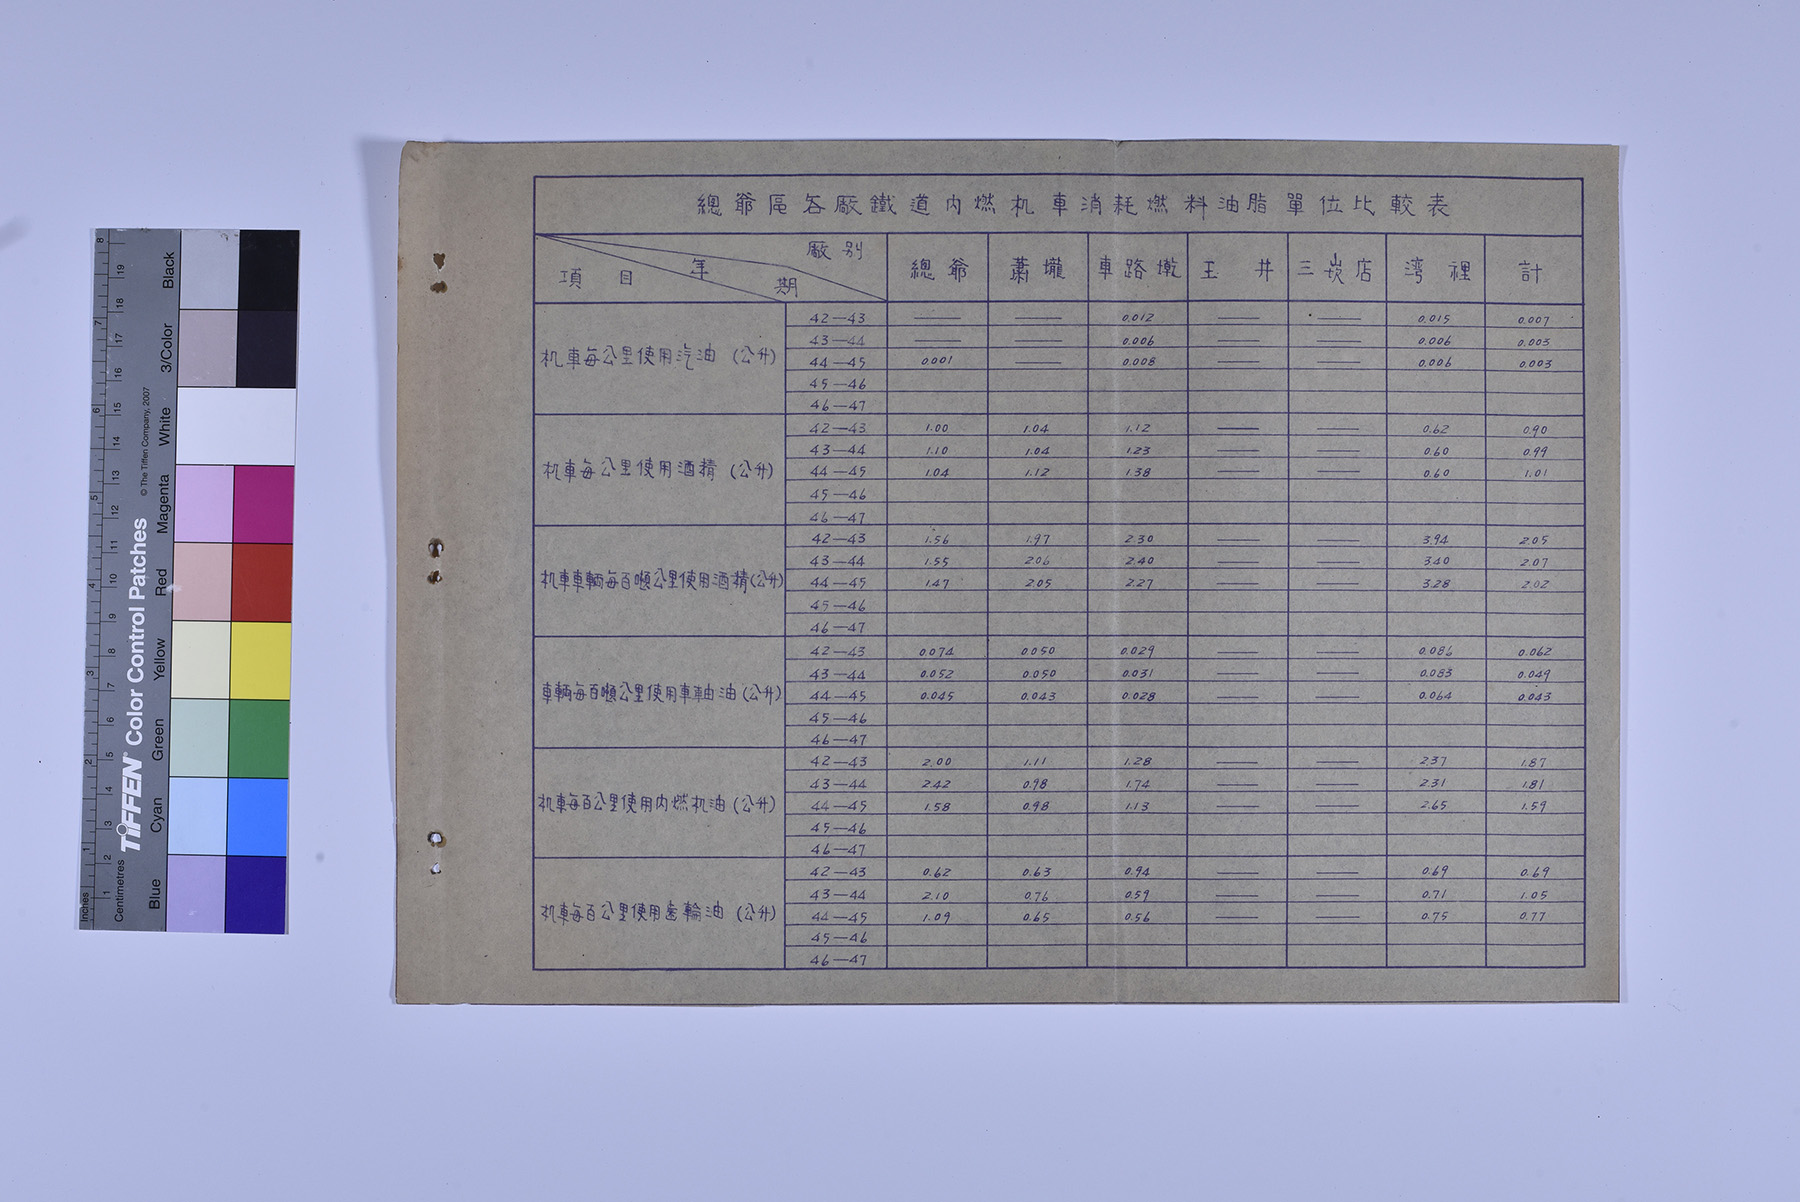 總爺區各廠鐵道内燃机車消耗燃料油脂單位比較表
項目 年期 廠别 總爺 蕭壠 車路墘 玉井 三崁店 湾裡 計
机車每公里使用汽油 (公升)
42—43 —— —— 0.012 —— —— 0.015 0.007
43—44 —— —— 0.006 —— —— 0.006 0.003
44—45 0.001 —— 0.008 —— —— 0.006 0.003
45—46
46—47
机車每公里使用酒精 (公升)
42—43 1.00 1.04 1.12 —— —— 0.62 0.90
43—44 1.10 1.04 1.23 —— —— 0.60 0.99
44—45 1.04 1.12 1.38 —— —— 0.60 1.01
45—46
46—47
机車車輌每百噸公里使用酒精(公升)
42—43 1.56 1.97 2.30 —— —— 3.94 2.05
43—44 1.55 2.06 2.40 —— —— 3.40 2.07
44—45 1.47 2.05 2.27 —— —— 3.28 2.02
45—46
46—47
車輌每百噸公里使用車軸油(公升)
42—43 0.074 0.050 0.029 —— —— 0.086 0.062
43—44 0.052 0.050 0.031 —— —— 0.083 0.049
44—45 0.045 0.043 0.028 —— —— 0.064 0.043
45—46
46—47
机車每百公里使用内燃机油(公升)
42—43 2.00 1.11 1.28 —— —— 2.37 1.87
43—44 2.42 0.98 1.74 —— —— 2.31 1.81
44—45 1.58 0.98 1.13 —— —— 2.65 1.59
45—46
46—47
机車每百公里使用齒輪油 (公升)
42—43 0.62 0.63 0.94 —— —— 0.69 0.69
43—44 2.10 0.76 0.59 —— —— 0.71 1.05
44—45 1.09 0.65 0.56 —— —— 0.75 0.77
45—46
46—47
TIFFEN® Color Control Patches
© The Tiffen Company, 2007
Inches
1 2 3 4 5 6 7 8
Centimetres
1 2 3 4 5 6 7 8 9 10 11 12 13 14 15 16 17 18 19
Blue Cyan Green Yellow Red Magenta White 3/Color Black